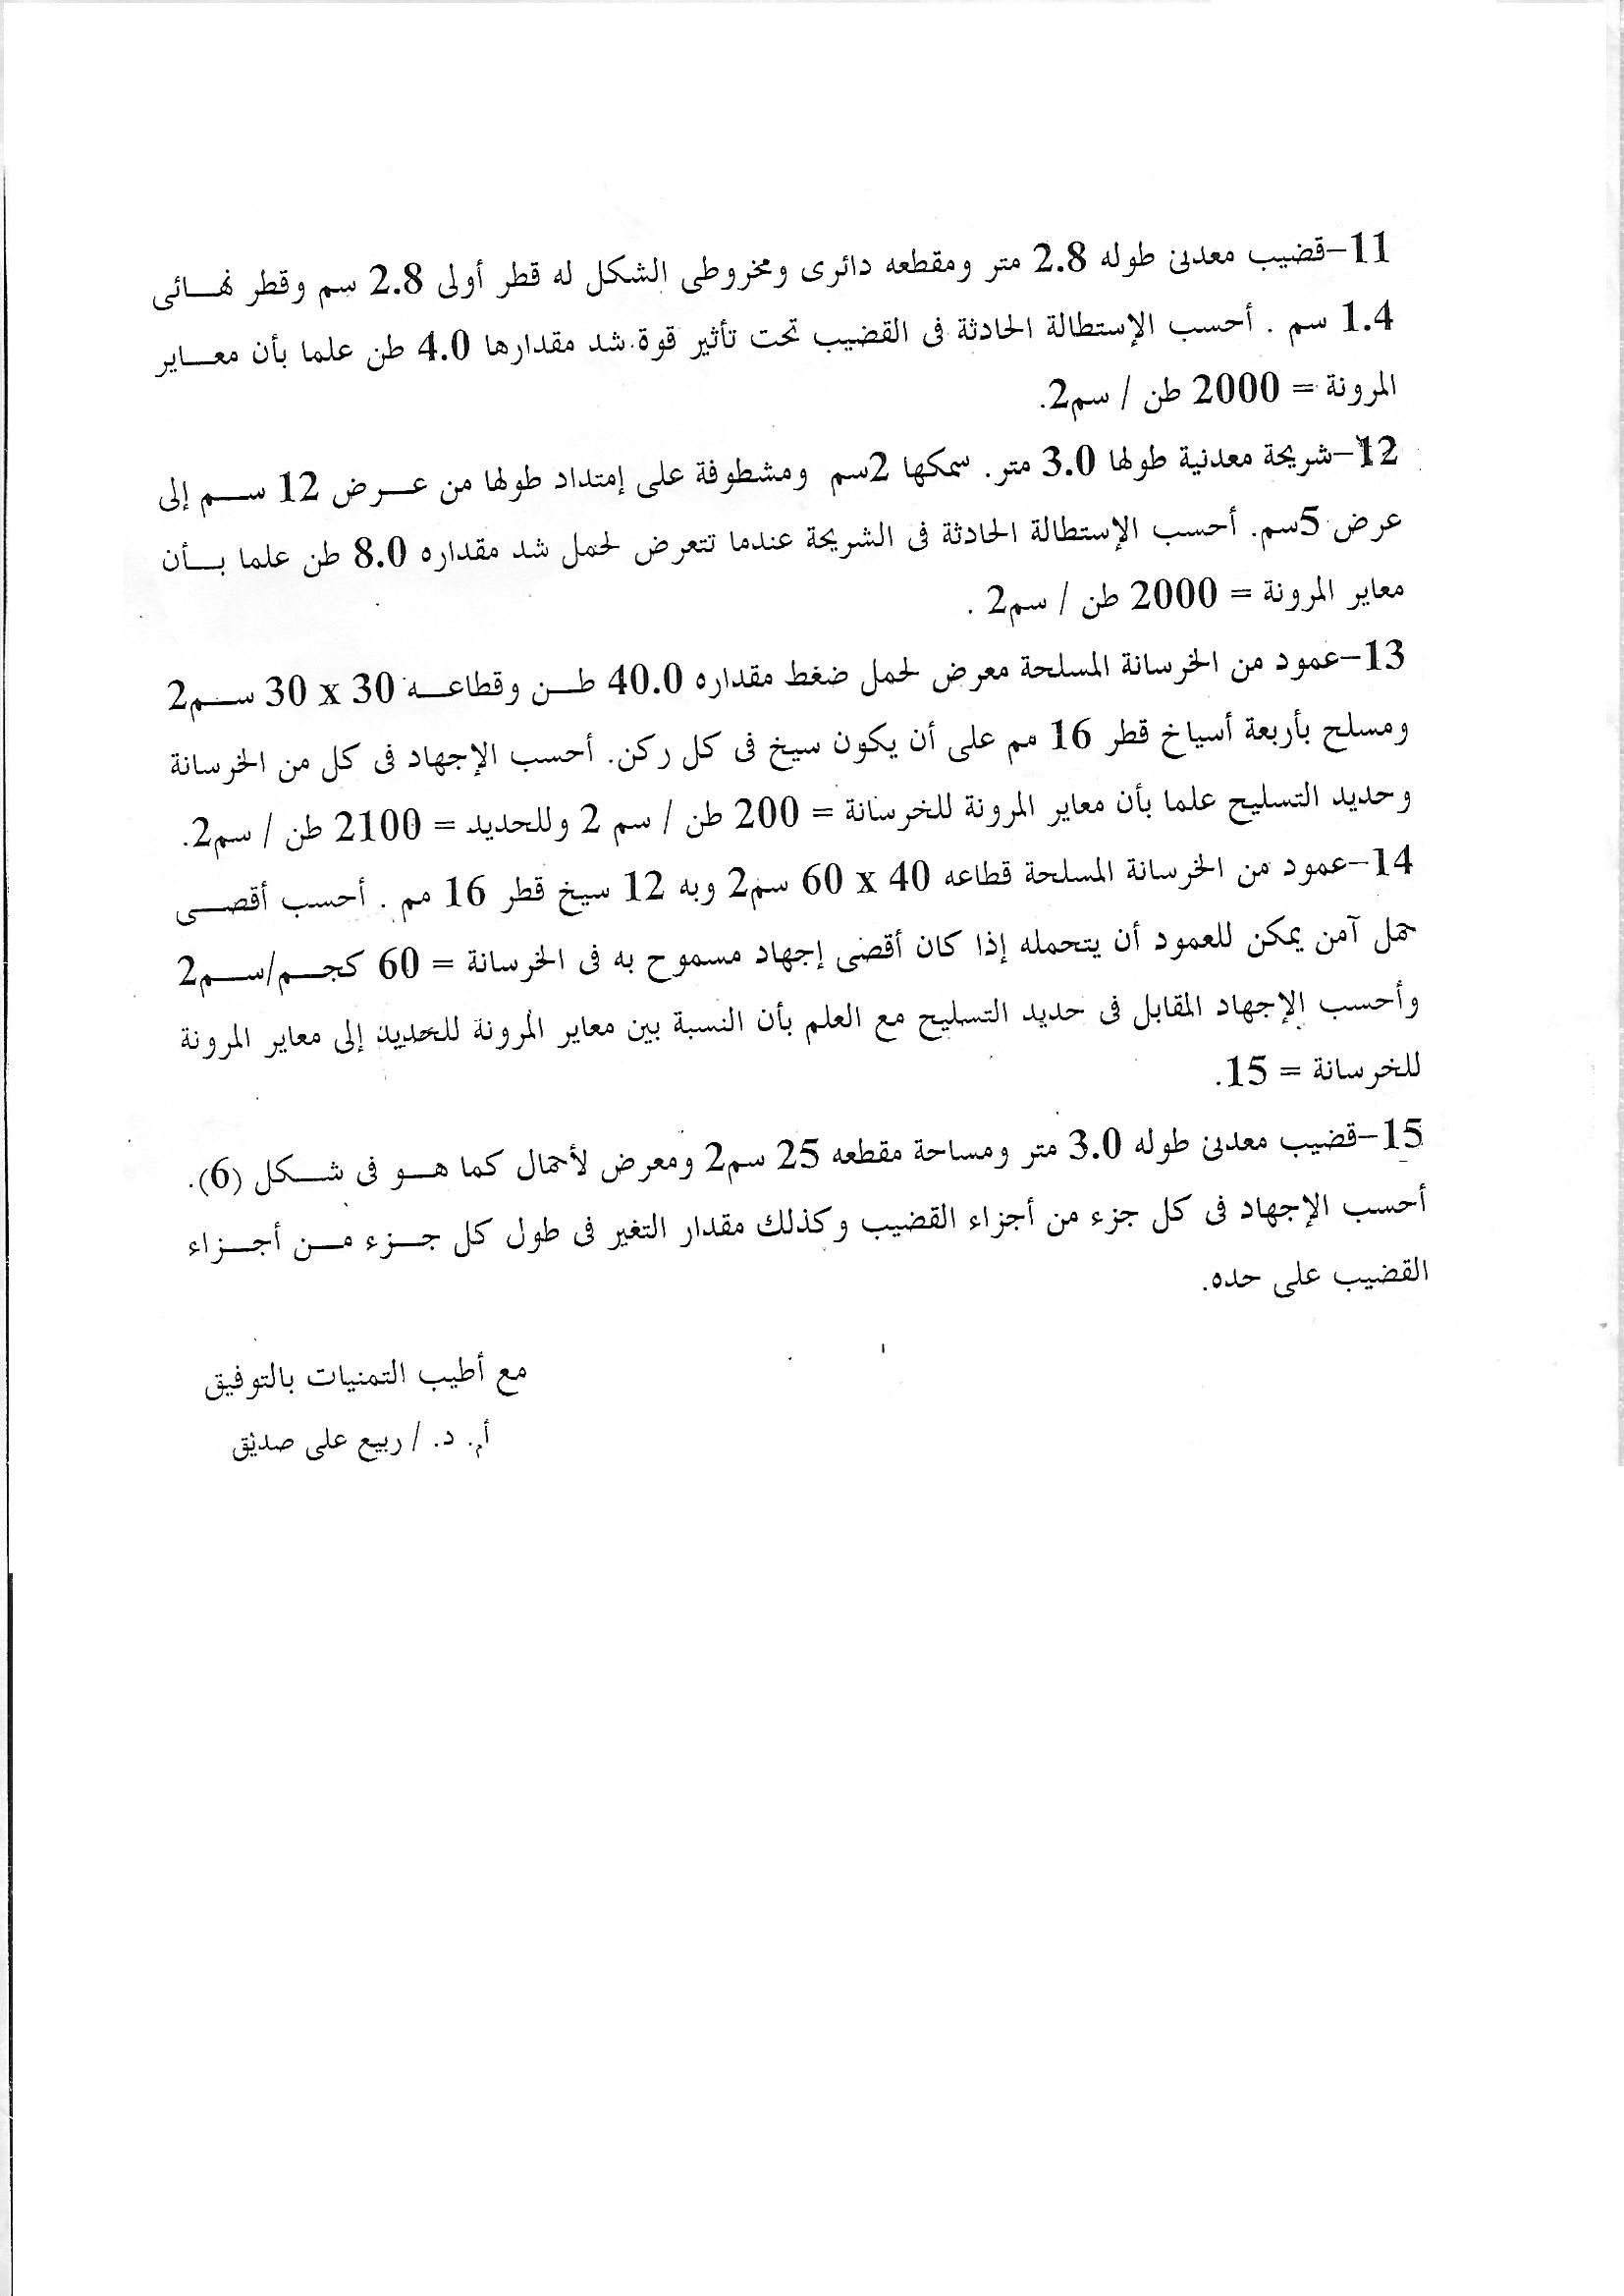 11-قضيب معدنى طوله 2.8 متر ومقطعه دائرى ومخروطى الشكل له قطر أولى 2.8 سم وقطر نهـــائى
1.4 سم . أحسب الإستطالة الحادثة فى القضيب تحت تأثير قوة شد مقدارها 4.0 طن علما بأن معـــاير
المرونة = 2000 طن / سم2.
12-شريحة معدنية طولها 3.0 متر. سمكها 2سم ومشطوفة على إمتداد طولها من عـــرض 12 ســـم إلى
عرض 5سم. أحسب الإستطالة الحادثة فى الشريحة عندما تتعرض لحمل شد مقداره 8.0 طن علما بـــأن
معاير المرونة = 2000 طن / سم2 .
13-عمود من الخرسانة المسلحة معرض لحمل ضغط مقداره 40.0 طـــن وقطاعـــه 30 x 30 ســـم2
ومسلح بأربعة أسياخ قطر 16 مم على أن يكون سيخ فى كل ركن. أحسب الإجهاد فى كل من الخرسانة
وحديد التسليح علما بأن معاير المرونة للخرسانة = 200 طن / سم 2 وللحديد = 2100 طن / سم2.
14-عمود من الخرسانة المسلحة قطاعه 40 x 60 سم2 وبه 12 سيخ قطر 16 مم . أحسب أقصـــى
حمل آمن يمكن للعمود أن يتحمله إذا كان أقصى إجهاد مسموح به فى الخرسانة = 60 كجـــم/ســـم2
وأحسب الإجهاد المقابل فى حديد التسليح مع العلم بأن النسبة بين معاير المرونة للحديد إلى معاير المرونة
للخرسانة = 15.
15-قضيب معدنى طوله 3.0 متر ومساحة مقطعه 25 سم2 ومعرض لأحمال كما هـــو فى شـــكل (6).
أحسب الإجهاد فى كل جزء من أجزاء القضيب وكذلك مقدار التغير فى طول كل جـــزء مـــن أجـــزاء
القضيب على حده.
مع أطيب التمنيات بالتوفيق
أ.م. د. / ربيع على صديق